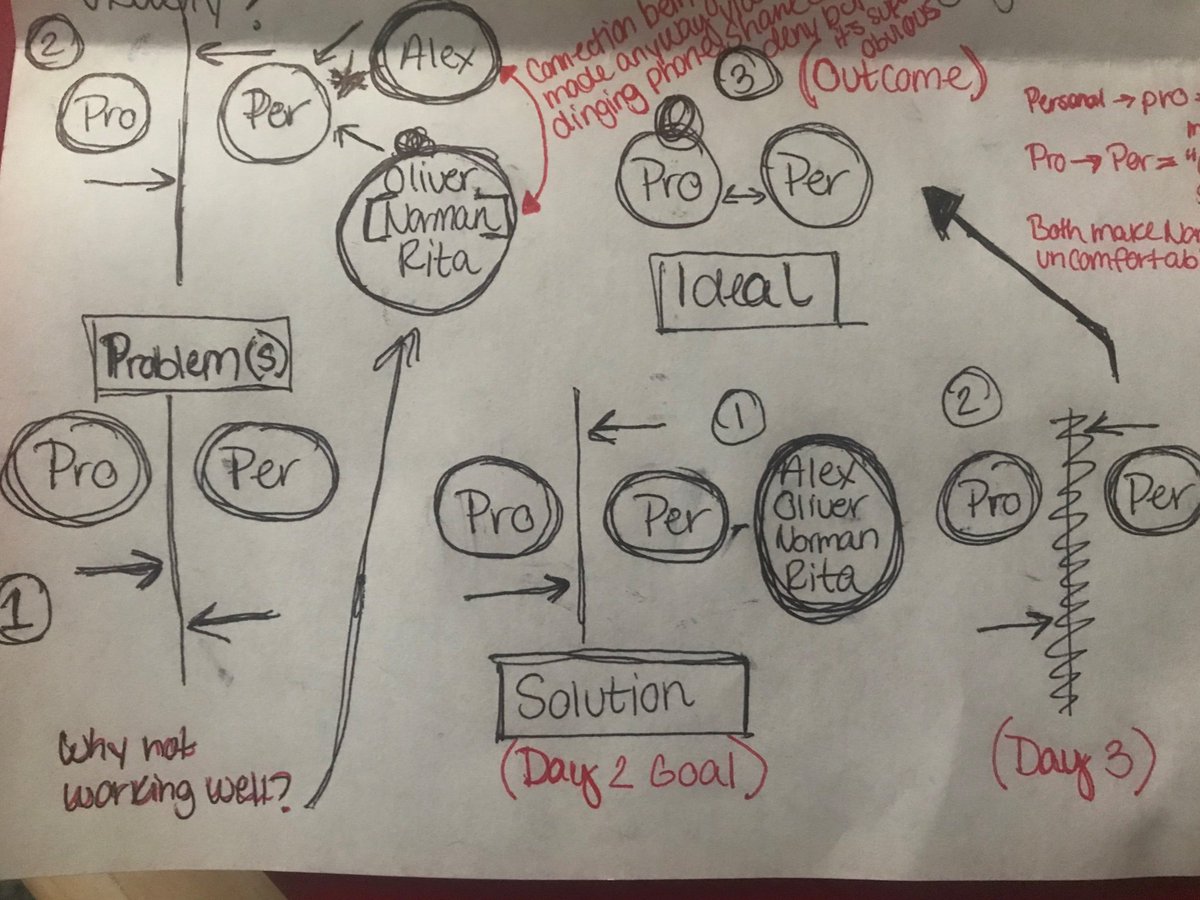 2
Pro
Per
Alex
Oliver,
[Norman]
Rita
Connection being
made anyway
dinging phone
deny
it's
obvious
3
(Outcome)
Pro
Per
Ideal
Personal → pro =
Pro → Per = "
Both make
uncomfortab
Problem(s)
Pro
Per
1
Why not
working well?
1
Pro
Per
Alex
Oliver
Norman
Rita
Solution
(Day 2 Goal)
2
Pro
Per
(Day 3)